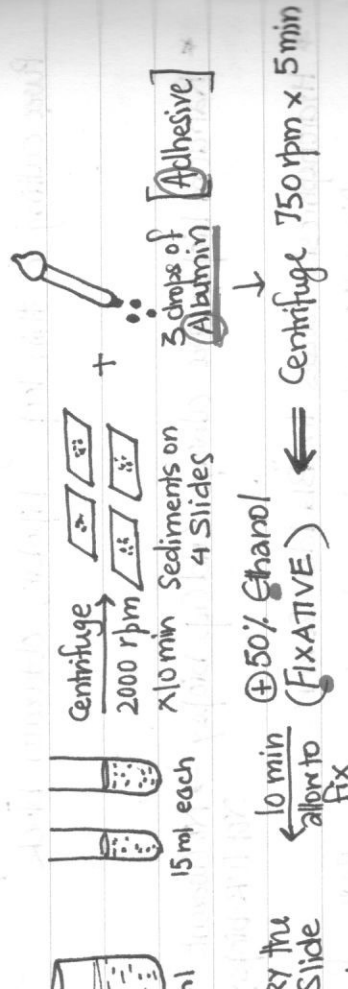 15 ml each
Centrifuge
2000 rpm
x10 min
Sediments on
4 Slides
+
3 drops of
Albumin [Adhesive]
↓
Centrifuge 750 rpm x 5 min
⇐
⊕ 50% Ethanol
(FIXATIVE)
←
10 min
allow to
fix
the
Slide